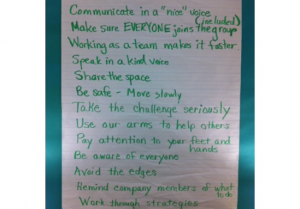 Communicate in a "nice" voice
Make sure EVERYONE joins the group (included)
Working as a team makes it faster
Speak in a kind voice
Share the space
Be safe - Move slowly
Take the challenge seriously
Use our arms to help others
Pay attention to your feet and hands
Be aware of everyone
Avoid the edges
Remind company members of what to do
Work through strategies